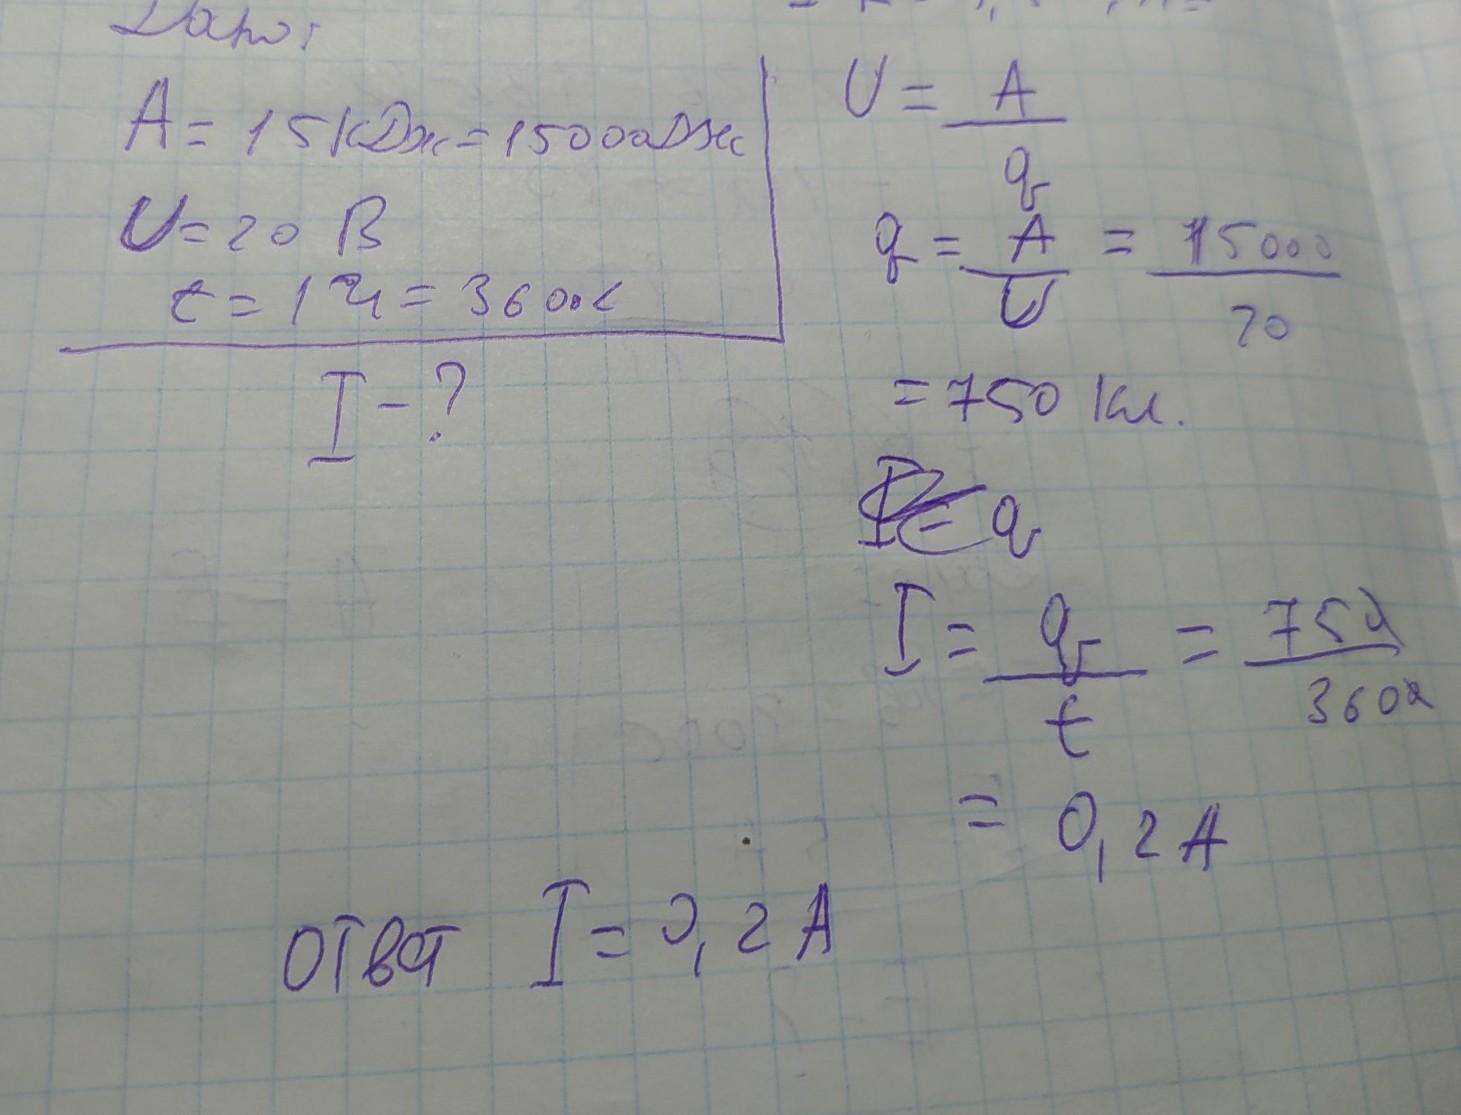 Дано:
A = 15 кДж = 15000 Дж
U = 20 В
t = 1 ч = 3600 с
I - ?
U = A / q
q = A / U = 15000 / 20
= 750 Кл.
I = q
I = q / t = 750 / 3600
= 0,2 А
ответ I = 0,2 А